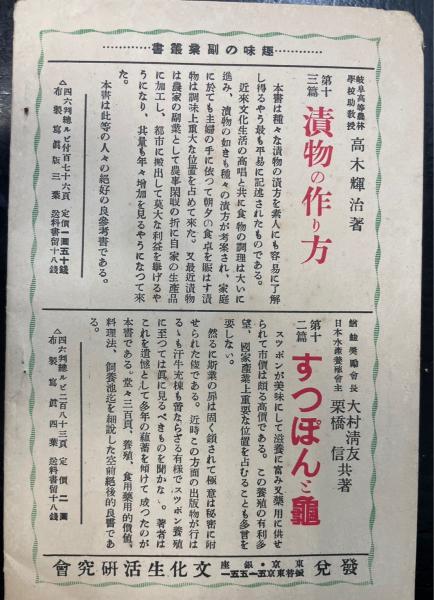 趣味の副業叢書
岐阜高等農林
學校助教授 高木輝治著
第十三篇 漬物の作り方
本書は種々な漬物の漬方を素人にも容易に了解
し得るやう最も平易に記述されたものである。
近來文化生活の高唱と共に食物の調理は大いに
進み、漬物の如きも種々の漬方が考案され、家庭
に於ても主婦の手に依つて朝夕の食卓を賑はす漬
物は調味上重大な位置を占めて來た。又最近漬物
は農家の副業として農事閑暇の折に自家の生産品
に加工し、都市に搬出して莫大な利益を擧げるや
うになり、其量も年々增加を見るやうになつて來
た。
本書は此等の人々の絕好の良參考書である。
△四六判總ルビ付百七十六頁 定價一圓五十錢
△布製寫眞版三葉 送料書留十八錢
會長 大村淸友
日本水產養殖會主 栗橋信共著
第十二篇 すつぽんと龜
スツポンが美味にして滋養に富み又藥用に供せ
られて市價は頗る高價である。この養殖の有利多
望、國家產業上重要な位置を占むることも多言を
要しない。
然るに斯業の扉は固く鎖されて極意は秘密に附
せられた儘である。近時この方面の出版物が行は
るゝも汗牛充棟も啻ならざる有樣でスツポン養殖
に至つては眞に見るべきものを聞かない。著者は
これを遺憾として多年の蘊蓄を傾けて成つたのが
本書である。堂々三百頁、養殖、食用藥用的價値、
料理法、飼養池迄を細說した空前絕後的良書であ
る。
△四六判總ルビ二百八十三頁 定價二圓
△布製寫眞四葉 送料書留十八錢
發兌
東京・銀座
振替東京五一五五一
文化生活研究會